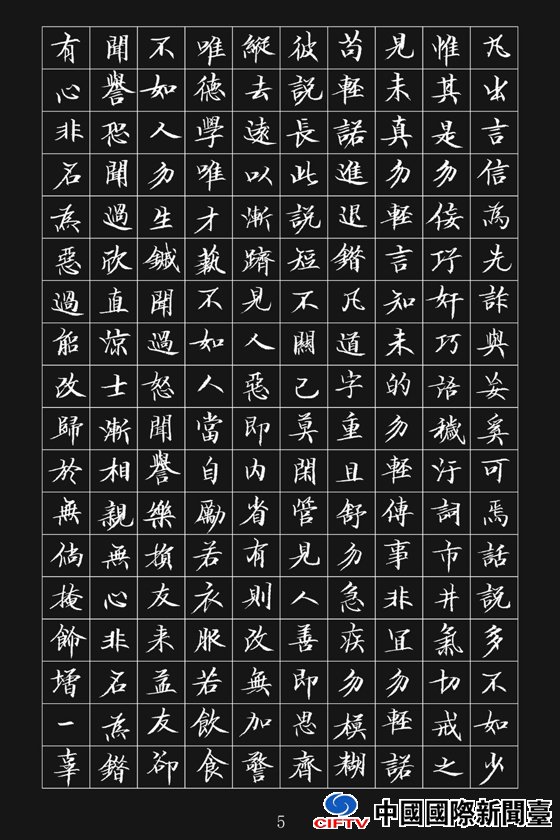 凡出言信為先詐與妄奚可焉話說多不如少
惟其是勿佞巧奸巧語穢汙詞市井氣切戒之
見未真勿輕言知未的勿輕傳事非宜勿輕諾
苟輕諾進退錯凡道字重且舒勿急疾勿模糊
彼說長此說短不關己莫閑管見人善即思齊
縱去遠以漸躋見人惡即內省有則改無加警
唯德學唯才藝不如人當自勵若衣服若飲食
不如人勿生鏚聞過怒聞譽樂損友來益友卻
聞譽恐聞過欣直諒士漸相親無心非名為錯
有心非名為惡過能改歸於無倘掩飾增一辜
5
CIFTV 中國國際新聞臺